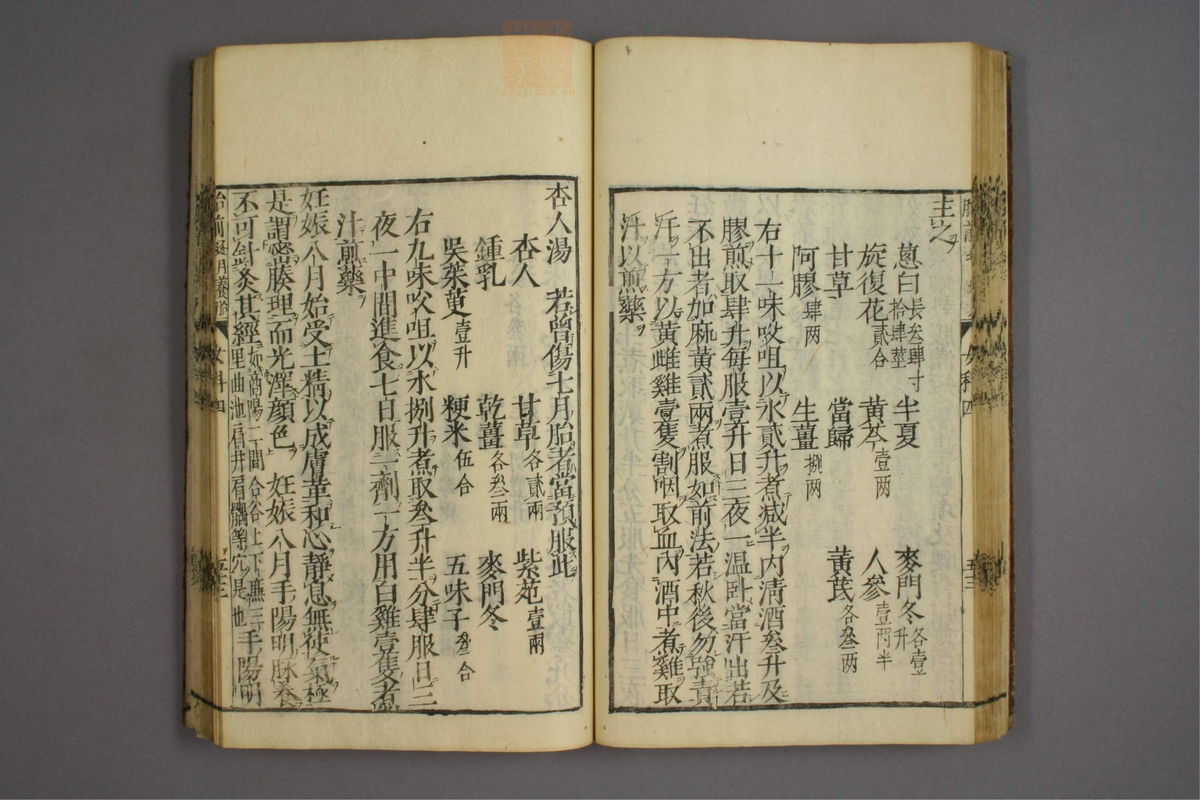 主之
葱白長叁肆寸拾肆莖 半夏 麥門冬各壹升
旋復花貳合 黃芩壹两 人參壹两半
甘草 當歸 黃芪各叁两
阿膠肆两 生薑捌两
右十一味㕮咀以水貳升煮减半内清酒叁升及
膠煎取肆升每服壹升日三夜一温卧當汗出若
不出者加麻黃貳兩煮服如前法若秋後勿強責
汗一方以黃雌雞壹隻割咽取血內酒中煮雞取
汁以煎藥
杏人湯 若曾傷七月胎者當預服此
杏人 甘草各貳兩 紫菀壹兩
鍾乳 乾薑各叁兩 麥門冬
吳茱萸壹升 粳米伍合 五味子叁合
右九味㕮咀以水捌升煮取叁升半分肆服日三
夜一中間進食七日服一劑一方用白雞壹隻煮
汁煎藥
妊娠八月始受土精以成膚革和心靜息無使氣極
是謂密腠理而光澤顏色 妊娠八月手陽明脉養
不可針灸其經如商陽二間合谷上下廉三里曲池肩井肩髃等穴是也手陽明
女科四